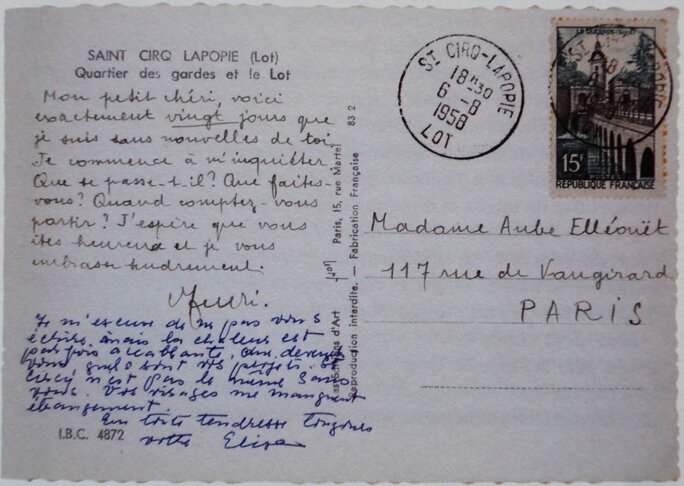 SAINT CIRQ LAPOPIE (Lot)
Quartier des gardes et le Lot
Mon petit chéri, voici
exactement vingt jours que
je suis sans nouvelles de toi.
Je commence à m'inquiéter.
Que se passe-t-il? Que faites-
vous? Quand comptez-vous
partir? J'espère que vous
êtes heureux et je vous
embrasse tendrement.
Je m'excuse de ne pas vous
écrire, mais la chaleur est
parfois accablante,
vous quels sont vos projets. St
Circq n'est pas le même sans
vous. Vos visages me manquent
étrangement.
En toute tendresse toujours
votre Elisa
I.B.C. 4872
83 2
Paris, 15, rue Martel
Fabrication Française
d'Art
Reproduction interdite.
ST CIRQ-LAPOPIE
18H30
6 -8
1958
LOT
15F
POSTES
REPUBLIQUE FRANÇAISE
Madame Aube Elléouët
117 rue de Vaugirard
PARIS